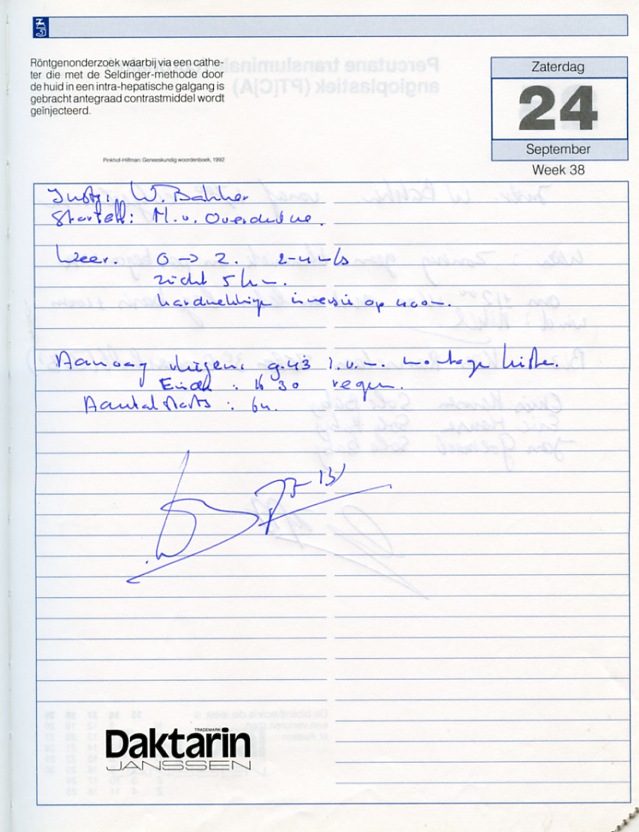 Röntgenonderzoek waarbij via een cathe-
ter die met de Seldinger-methode door
de huid in een intra-hepatische galgang is
gebracht antegraad contrastmiddel wordt
geïnjecteerd.
Pinkhof-Hilfman: Geneeskundig woordenboek, 1992
Zaterdag
24
September
Week 38
Instr: W. Bakker
Startoff: M. v.
Weer. 0 → 2. 2-4 m/s
zicht 5 km.
hardnekkige inversie op 400 m.
Aanvang vliegen: 9.43 i.v.m. montage
Einde : 16 30 regen.
Aantal starts : 64.
TRADEMARK
Daktarin
JANSSEN